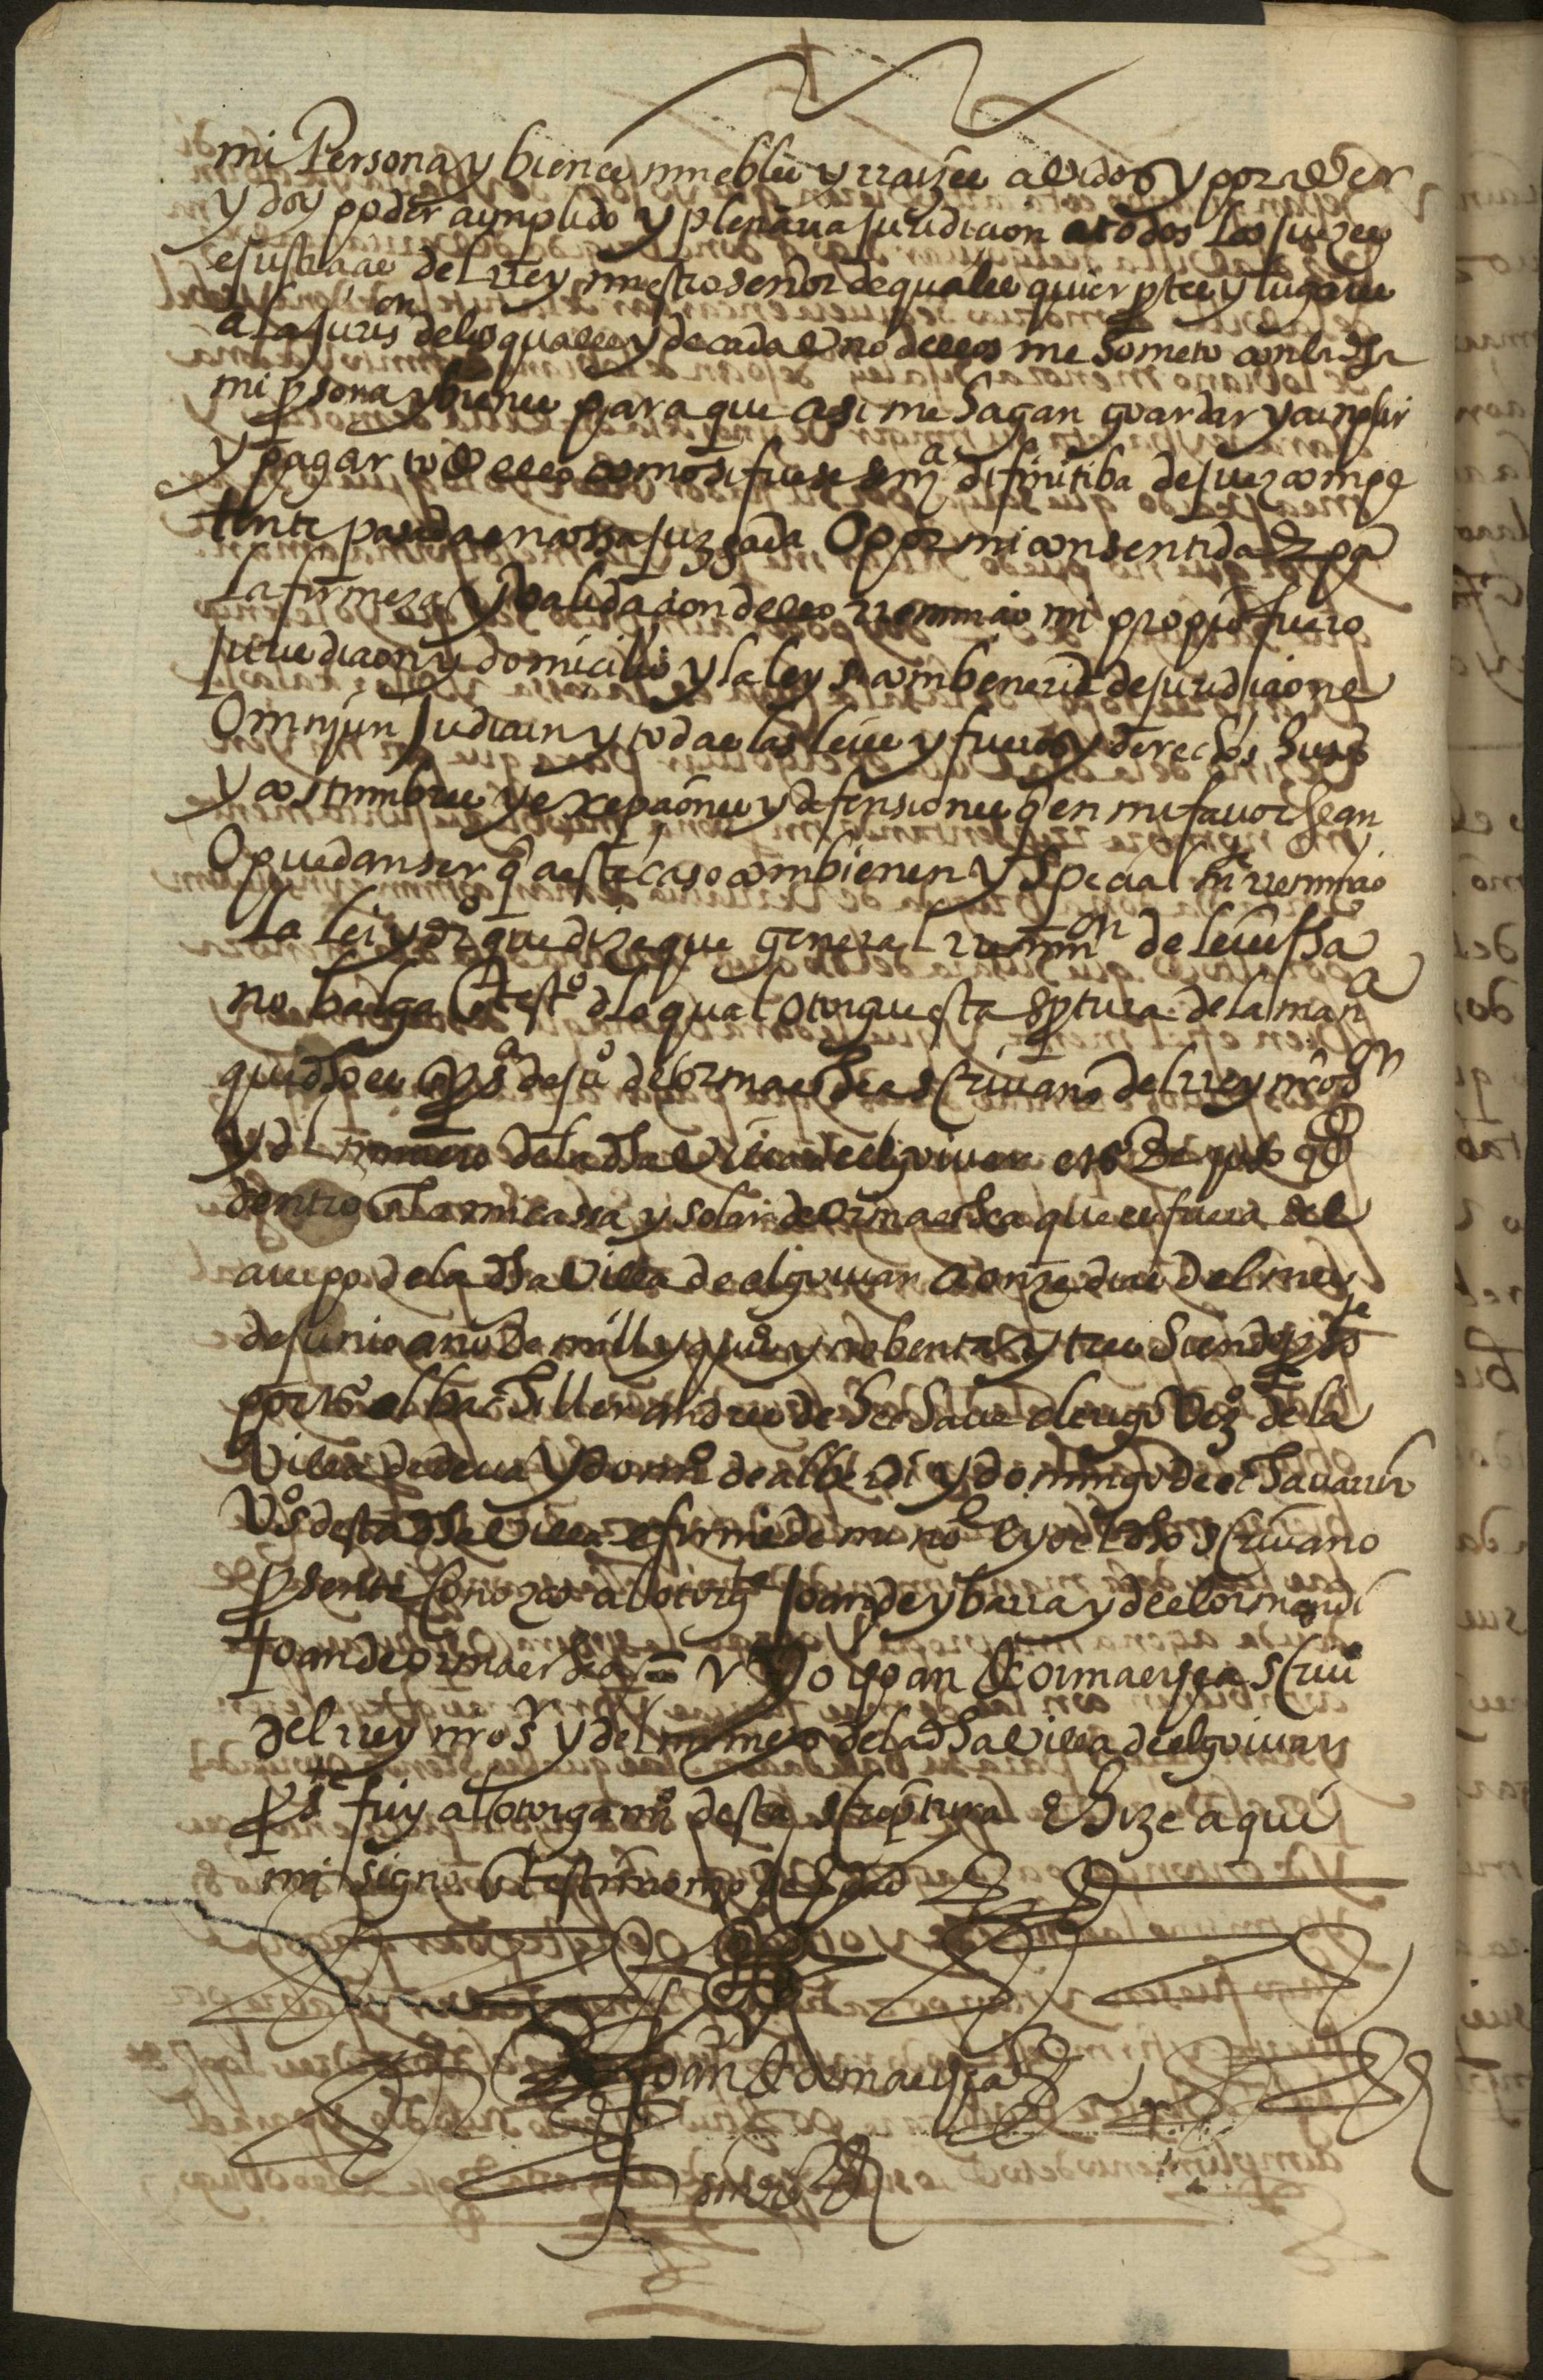 mi Persona y bienes muebles y rraizes avidos y por aver
y doy poder cumplido y plenaria juridicion a todos los juezes
e justicias del rrey nuestro señor de quales quier ptes y lugares
a la juris on de los quales y de cada vno dellos me someto con la dha
mi psona y bienes para que asi me hagan guardar y cumplir
y pagar todo ello como si fuese sn a difinitiba de juez compe
tente pasada en cosa juzgada o por mi consentida E pa
la firmeza y validacion dello rrenuncio mi propio fuero
juridicion y domicilio y la ley si combenerid de juridicione
Omniun judicun y todas las leies y fueros y derechos husos
y costumbres y exepciones y defensiones q en mi fauor sean
O puedan ser q a este caso combienen y Special m te rrenuncio
la lei y dro que dize que general rrenun on de leies fha
no balga En test o de lo qual otorgue esta sptura de la man a
que dho es en ps a de ju o de ormaechea scriuano del rrey nro s or
y del numero de la dha villa de elgoivar
dentro En la mi casa y solar de ormaechea que es fuera del
cuerpo de la dha villa de elgoiuar a onze dias del mes
de junio año de mill y qui os y nobenta y tres siendo
por ts o el bachiller andres de clerigo vez o de la
villa de deua y dom o de alberdi y domingo de echavarria
v os desta dha villa e firme de mi no e yo el dho scriuano
psente conozco al otorg te Joan de ybarra y de elormendi
Joan de ormaechea Yo joan de ormaechea scriu o
del rrey nro s or y del numero de la dha villa de elgoiuar
ps te fuy al otorgam o desta scriptura E hize aqui
mi signo En testimonio de verdad
Joan de ormaechea